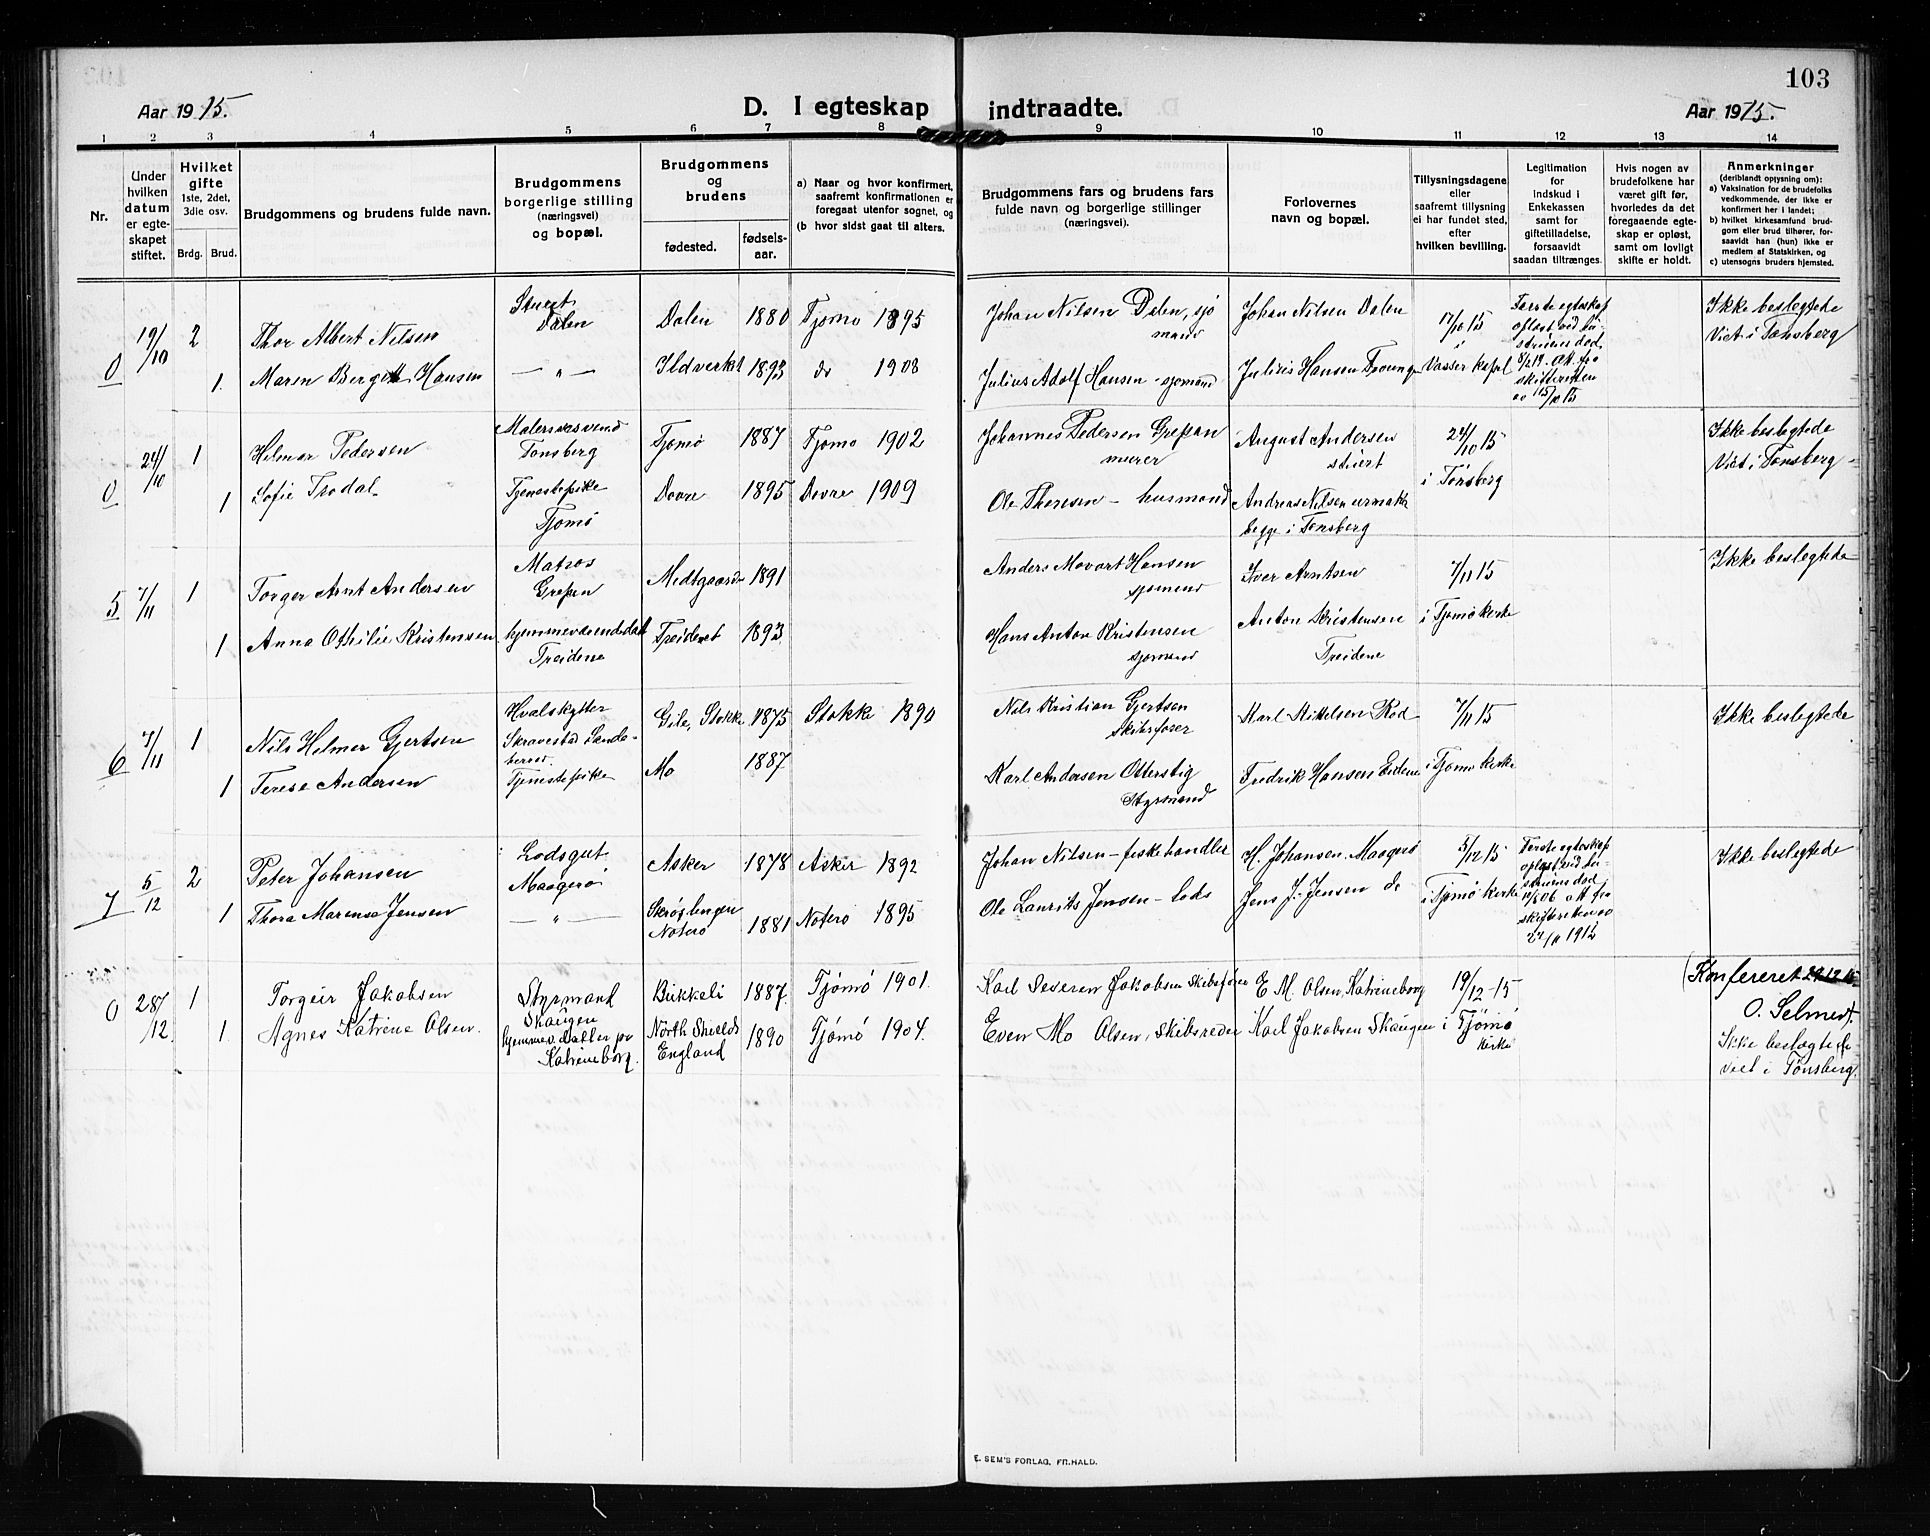 103
Aar 1915.
D. I egteskap indtraadte.
Aar 1915.
1 2 3 4 5 6 7 8 9 10 11 12 13 14
Nr.
Under hvilken datum er egte-skapet stiftet.
Hvilket gifte 1ste, 2det, 3die osv.
Brdg. Brud.
Brudgommens og brudens fulde navn.
Brudgommens borgerlige stilling (næringsvei) og bopæl.
Brudgommens og brudens
fødested.
fødsels-aar.
a) Naar og hvor konfirmert, saafremt konfirmationen er foregaat utenfor sognet, og
(b hvor sidst gaat til alters.
Brudgommens fars og brudens fars fulde navn og borgerlige stillinger (næringsvei).
Forlovernes navn og bopæl.
Tillysningsdagene eller saafremt tillysning ei har fundet sted, efter hvilken bevilling.
Legitimation for indskud i Enkekassen samt for giftetilladelse, forsaavidt saadan tiltrænges.
Hvis nogen av brudefolkene har været gift før, hvorledes da det foregaaende egte-skap er opløst, samt om lovligt skifte er holdt.
Anmerkninger
(deriblandt opjysning om):
a) Vaksination for de brudefolks vedkommende, der ikke er konfirmert her i landet;
b) hvilket kirkesamfund brud-gom eller brud tilhører, for-saavidt han (hun) ikke er medlem af Statskirken, og
c) utensogns bruders hjemsted.
0 19/10 2 Thor Albert Nilsen
Stuert Dalen
Dalen 1880 Tjømø 1895
Johan Nilsen Dalen, sjømand
Johan Nilsen Dalen
17/10 15
Første egteskap opløst ved hustruens død 8/2 14. Att. fra skifteretten av 15/10 15
Ikke beslegtede
Viet i Tønsberg
1. Maren Bergitte Hansen
— " —
Ildverket 1893 do 1908
Julius Adolf Hansen - sjømand
Julius Hansen
i Vasser kapel
0 24/10 1 Hilmar Pedersen
Malersvend Tønsberg
Tjømø 1887 Tjømø 1902
Johannes Pedersen Grepan murer
August Andersen stuert
24/10 15
i Tønsberg
Ikke beslegtede
Viet i Tønsberg -
1 Sofie Trodal
Tjenestepike Tjømø
Dovre 1895 Dovre 1909
Ole Thoresen - husmand
Andreas Nilsen urmaker
begge i Tønsberg
5 7/11 1 Torger Arnt Andersen
Matros Grepan
Medtgaarden 1891
Anders Movart Hansen sjømand
Iver Arntsen
7/11 15
i Tjømø kirke
Ikke beslegtede
1 Anna Othilie Kristensen
hjemmeværende datter Treidene
Treidenet 1893
Hans Anton Kristensen sjømand
Anton Kristensen Treidene
6 7/11 1 Nils Helmer Gjertsen
Hvalskytter Skravestad Sandeherred
Gile, Stokke 1875 Stokke 1890
Nils Kristian Gjertsen Skibsfører
Karl Kittelsen Rød
7/11 15
i Tjømø kirke
Ikke beslegtede
1 Terese Andersen
Tjenestepike
Mo 1887
Karl Andersen Otterstig Styrmand
Fredrik Hansen Eidene
7 5/12 2 Peter Johansen
Lodsgut Maagerø
Asker 1878 Asker 1892
Johan Nilsen - fiskehandler
H. Johansen Maagerø
5/12 15
i Tjømø kirke
Første egteskap opløst ved hustruens død 12/6 06 att fra skifteretten av 22/11 1912
Ikke beslegtede
1 Thora Marense Jensen
— " —
Nøterø 1881 Nøterø 1895
Ole Laurits Jensen - Lods
Jens J. Jensen do
0 28/12 1 Torgeir Jakobsen
Styrmand Skaugen
Bukkeli 1887. Tjømø 1901.
Karl Severin Jakobsen Skibsfører
E. M. Olsen, Katrineborg
19/12 - 15
i Tjømø kirke
(Konfereret 29.12.15
O. Selmer).
Ikke beslægtede
viet i Tønsberg.
1. Agnes Katrine Olsen.
hjemmev. datter pr Katrineborg.
North Shields England 1890 Tjømø 1904.
Even Mo Olsen, Skibsreder
Karl Jakobsen Skaugen
E. SEM'S FORLAG, FR.HALD.